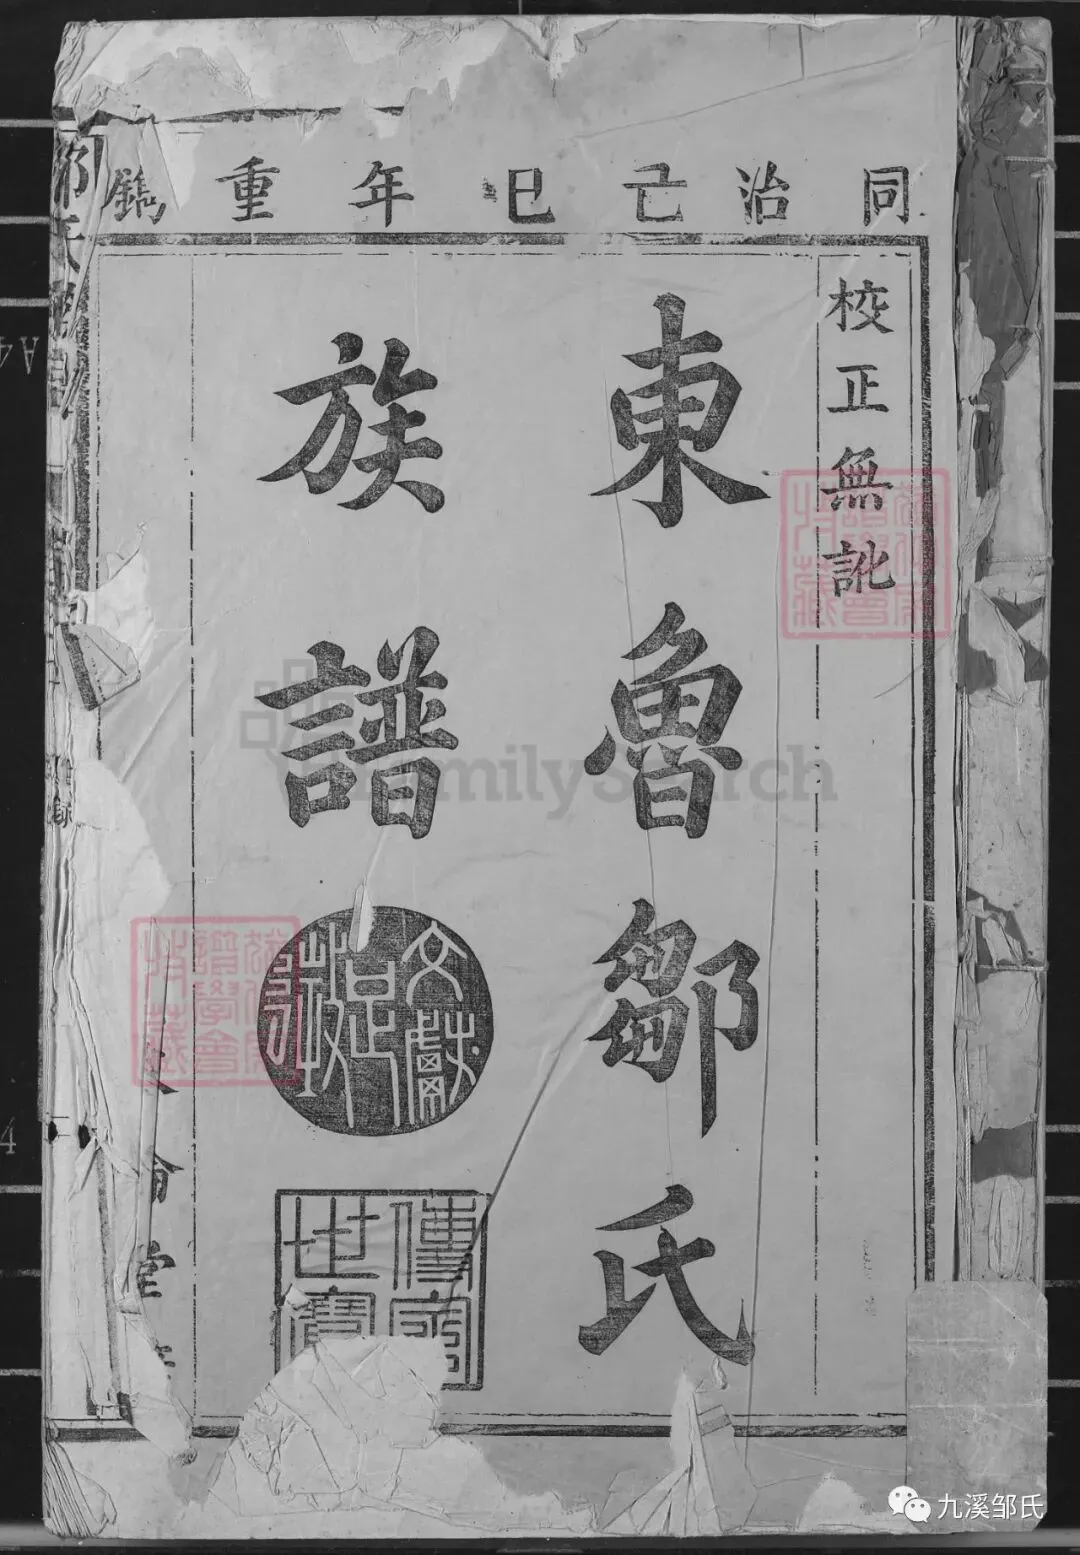 同治己巳年重鐫
校正無訛
東魯鄒氏
族譜
文獻足徵
傳家
世寶
堂
FamilySearch
A4
4
九溪邹氏